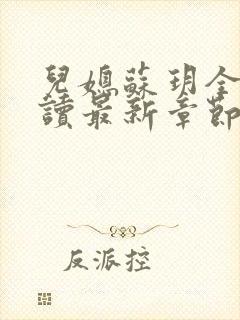 兒媳蘇玥全
讀最新章節
反派控